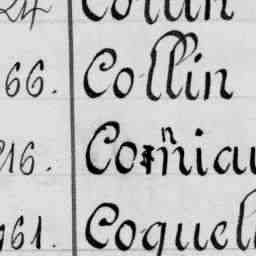 24 Collin
66. Collin
216. Corniau
961. Coquell